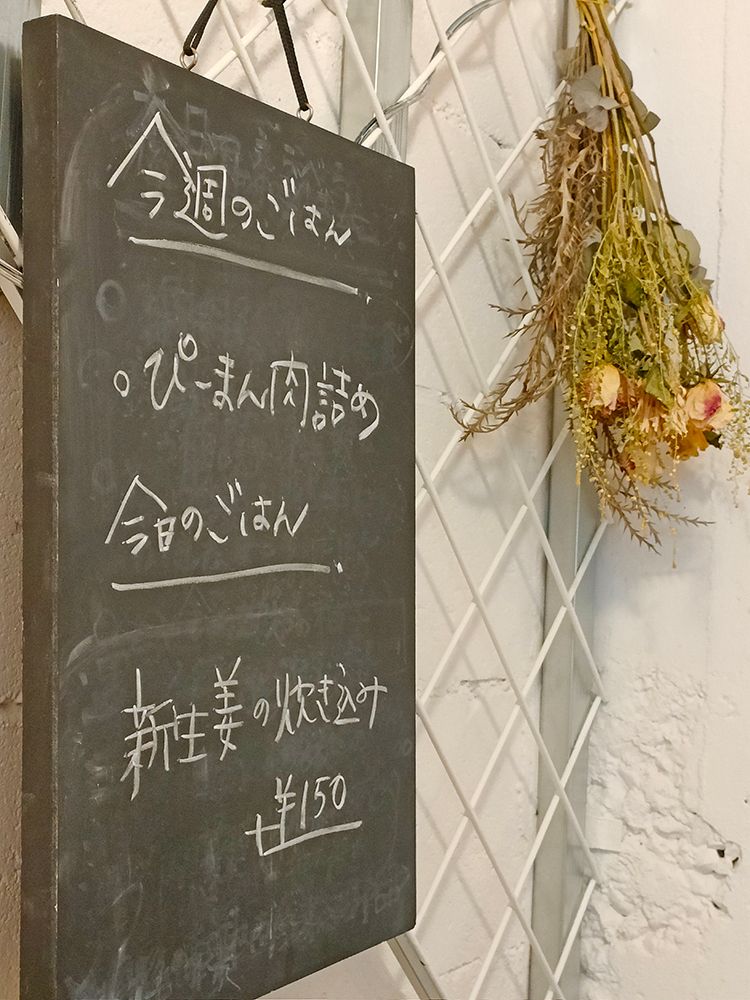 今週のごはん
○ぴーまん肉詰め
今日のごはん
新生姜の炊き込み
+¥150